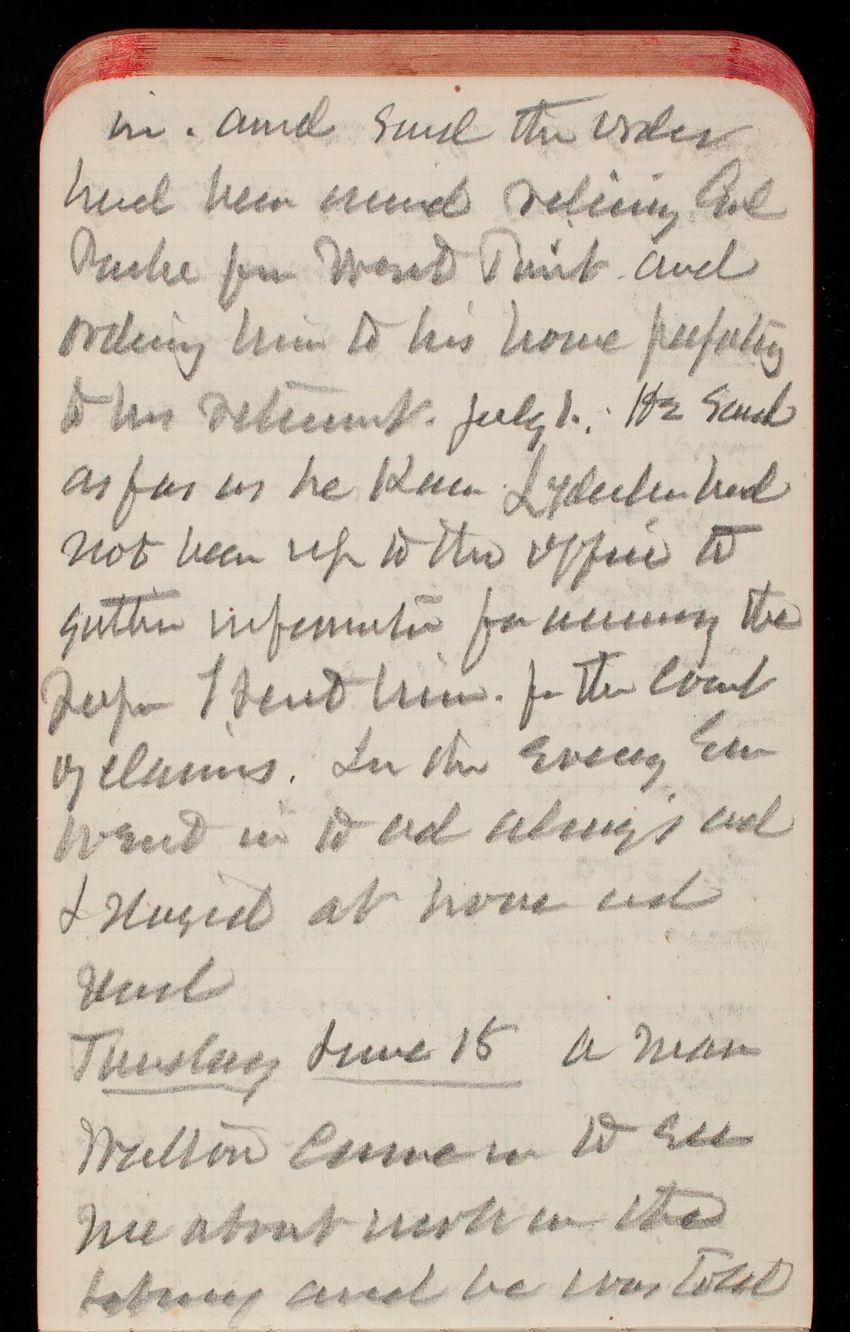 in. and said the order
had been issued relieving Col
from West Point and
ordering him to his home preparatory
to his retirement. July 1. He said
as far as he knew Lydecker had
not been up to the office to
gather information for answering the
I sent him. for the Court
of claims. In the Evening Em
went in to and
I stayed at home and
read
Tuesday June 15 a man
Walton came in to see
me about work on the
library and he was told